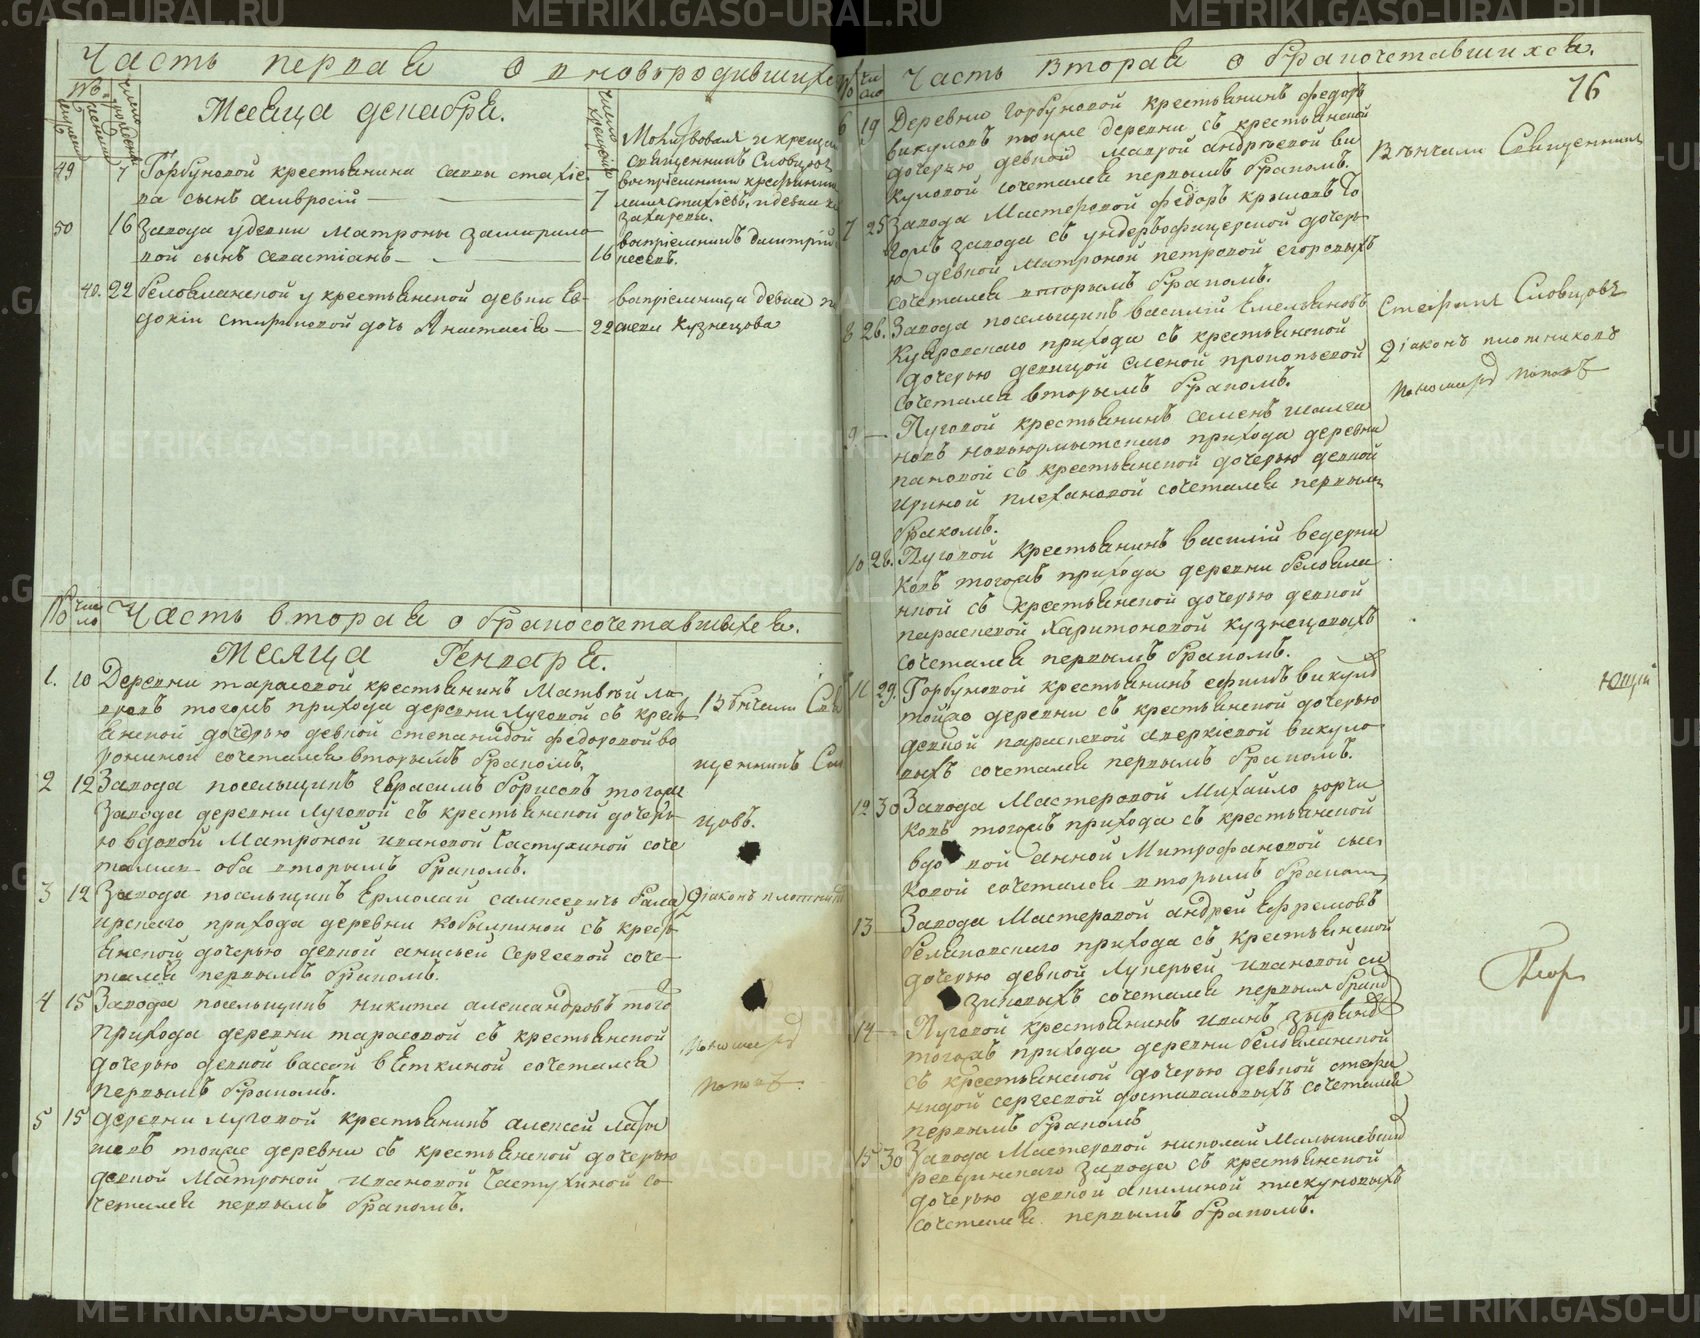 Часть первая о новородившихся
№
Месяца декабря.
Молитвовал и крещал
священникъ Словцовъ
49 7 Горбуновой крестьянина саввы стахіе-
ва сынъ амвросій 7
воспріемники крестьянинъ
50 16 Завода у девки Матроны
ной сынъ севастіанъ 16
воспріемникъ димитрій
40. 22 белоеланской у крестьянской девки Ев-
докіи дочь Анастасія 22
воспріемница девка
Кузнецова
№ число Часть вторая о бракосочетавшихся.
Месяца Генваря.
1. 10 Деревни тарасовой крестьянинъ Матвѣй
тогожъ прихода деревни Луговой съ кресть-
янской дочерью девкой степанидой федоровой во
рониной сочетался вторымъ бракомъ.
Вѣнчали Свя
щенникъ Сло
цовъ.
2 12 Завода посельщикъ Герасимъ борисовъ тогоже
Завода деревни Луговой съ крестьянской дочерь-
ю вдовой Матроной ивановой Частухиной соче
тались оба вторымъ бракомъ.
3 12 Завода посельщикъ Ермолай
прихода деревни кобылкиной съ кресть-
янской дочерью девкой анисьей Сергеевой соче-
тался первымъ бракомъ.
Діаконъ плотниковъ
4 15 Завода посельщикъ никита александровъ того
прихода деревни тарасовой съ крестьянской
дочерью девкой вассой вЯткиной сочетался
первымъ бракомъ.
Пономарь
поповъ.
5 15 деревни Луговой крестьянинъ алексей
тояже деревни съ крестьянской дочерью
девкой Матроной ивановой Частухиной со-
четался первымъ бракомъ.
№ число Часть вторая о бракочетавшихся.
76
6 19 Деревни Горбуновой крестьянинъ федоръ
викуловъ тояже деревни съ крестьянской
дочерью девкой Маврой андреевой ви
куловой сочетался первымъ бракомъ.
Вѣнчали Священникъ
7 25 Завода Мастеровой федоръ крыловъ то
гожъ завода съ ундеръофицерской дочерь
ю девкой Матроной петровой егоровыхъ
сочетался вторымъ бракомъ.
8 26. Завода посельщикъ василій Емельяновъ
Куяровскаго прихода съ крестьянской
дочерью девицой Еленой прокопьевой
сочетался вторымъ бракомъ.
Стефанъ Словцовъ
Діаконъ плотниковъ
Пономарь поповъ
9 — Луговой крестьянинъ семенъ
новъ новоюрмытскаго прихода деревни
пановой съ крестьянской дочерью девкой
ириной плехановой сочетался первымъ
бракомъ.
10 28. Луговой крестьянинъ василій ведерни
ковъ тогожъ прихода деревни белоела
нкой съ крестьянской дочерью девкой
параскевой Харитоновой кузнецовыхъ
сочетался первымъ бракомъ.
11 29. Горбуновой крестьянинъ ефимъ викуловъ
тойжо деревни съ крестьянской дочерью
девкой параскевой аверкіевой викуло
выхъ сочетался первымъ бракомъ.
ющій
12 30 Завода Мастеровой Михайло
ковъ тогожъ прихода съ крестьянской
вдовой анной Митрофановой
ковой сочетался вторымъ бракомъ
13 — Завода Мастеровой андрей Ефремовъ
беляковскаго прихода съ крестьянской
дочерью девкой Лукерьей ивановой
сочетался первымъ бракомъ
14 — Луговой крестьянинъ иванъ зырянов
тогожъ прихода деревни белоеланской
съ крестьянской дочерью девкой степа
нидой сергеевой достоваловыхъ сочетался
первымъ бракомъ
15 30 Завода Мастеровой николай Малышевъ
ревдинскаго Завода съ крестьянской
дочерью девкой акилиной пискуновыхъ
сочетался первымъ бракомъ.
METRIKI.GASO-URAL.RU